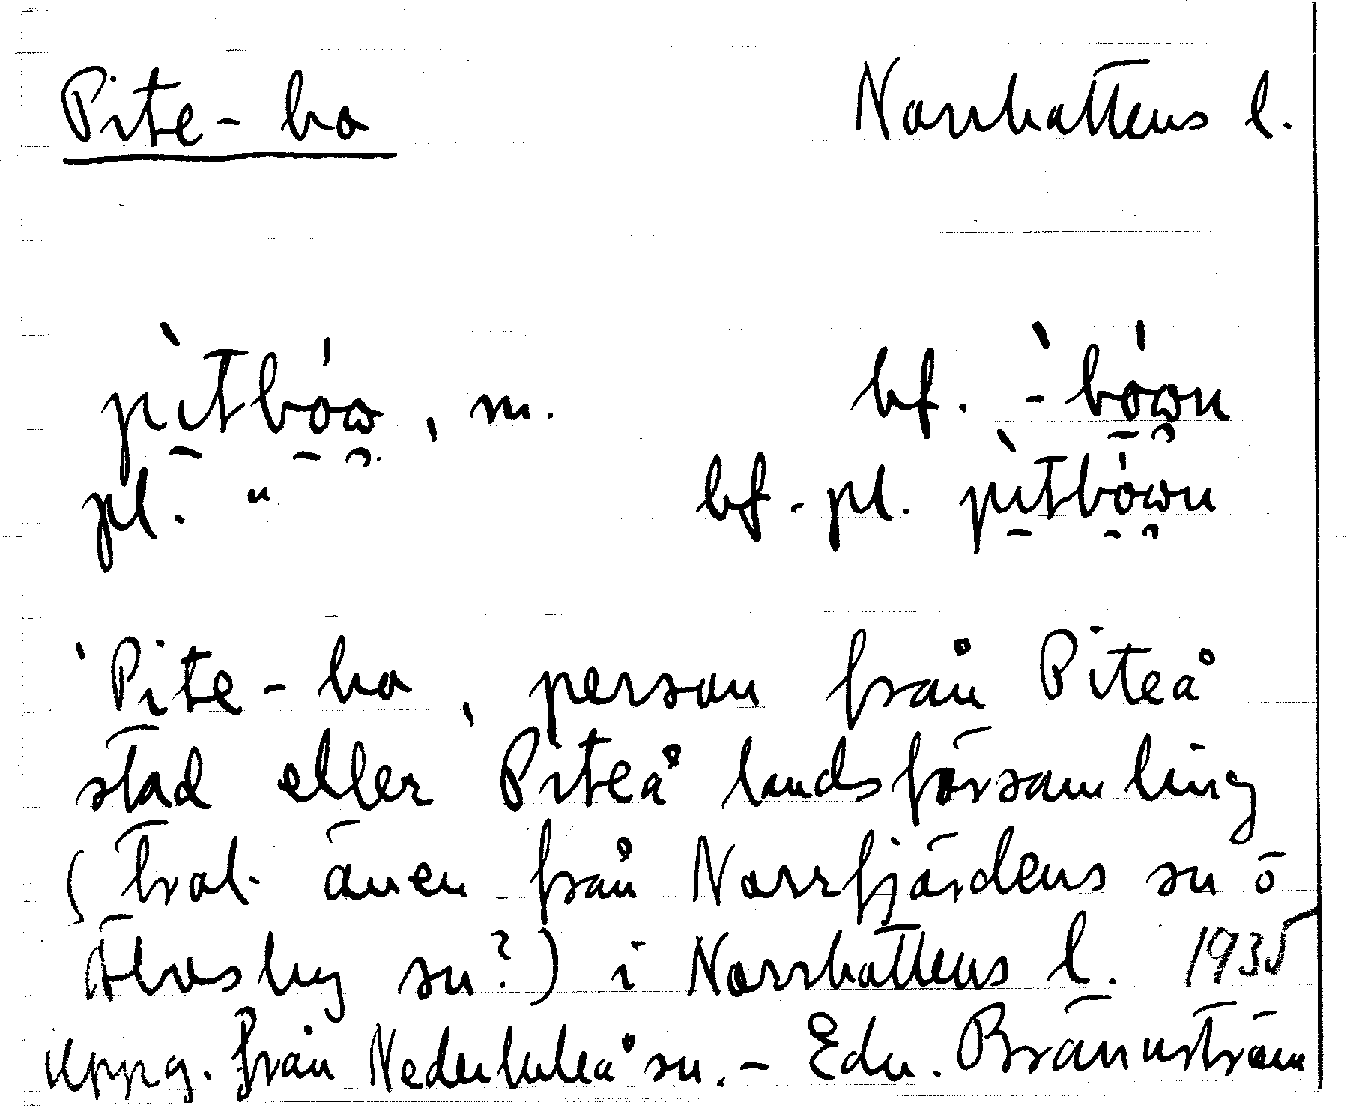 Pite-bo Norrbottens l.
pìtbów, m. bf. -̀bówn
pl. " bf. pl. pìtbówn
'Pite-bo, person från Piteå
stad eller Piteå landsförsamling
(trol. även från Norrfjärdens sn o
Älvsby sn?) i Norrbottens l. 1935
uppg. från Nederluleå sn. – Edv. Brännström